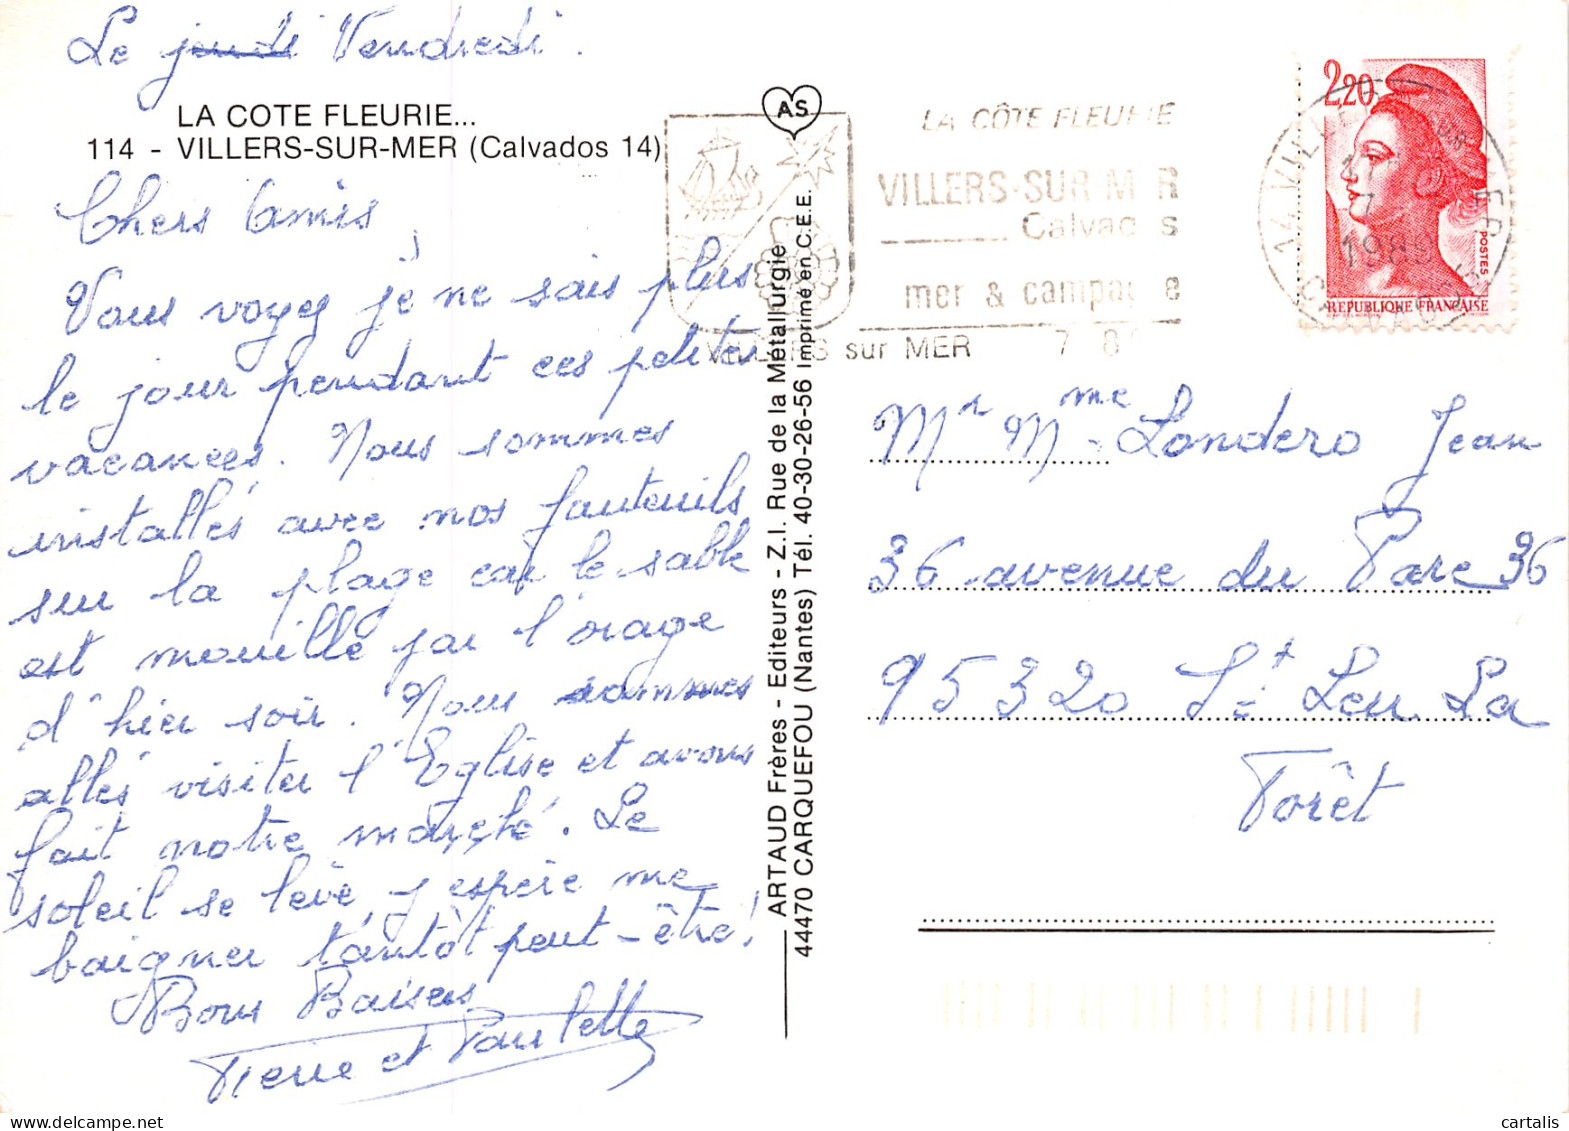 Le jeudi Vendredi.
LA COTE FLEURIE...
114 - VILLERS-SUR-MER (Calvados 14)
Chers Amis,
Vous voyez je ne sais plus
le jour pendant ces petites
vacances. Nous sommes
installés avec nos fauteuils
sur la plage car le sable
est mouillé par l'orage
d'hier soir. Nous sommes
allés visiter l'Eglise et avons
fait notre marché. Le
soleil se lève, j'espère me
baigner tantôt peut-être!
Bons Baisers
Pierre et Paulette
AS
ARTAUD Frères - Editeurs - Z.I. Rue de la Métallurgie
44470 CARQUEFOU (Nantes) Tél. 40-30-26-56 Imprimé en C.E.E.
LA CÔTE FLEURIE
VILLERS-SUR-MER
Calvados
mer & campagne
VILLERS sur MER
2,20
POSTES
REPUBLIQUE FRANÇAISE
14 VILLERS SUR MER
17
7
1989
CALVADOS
Mr Mme Londero Jean
36 avenue du Parc 36
95320 St Leu La
Forêt
cartalis